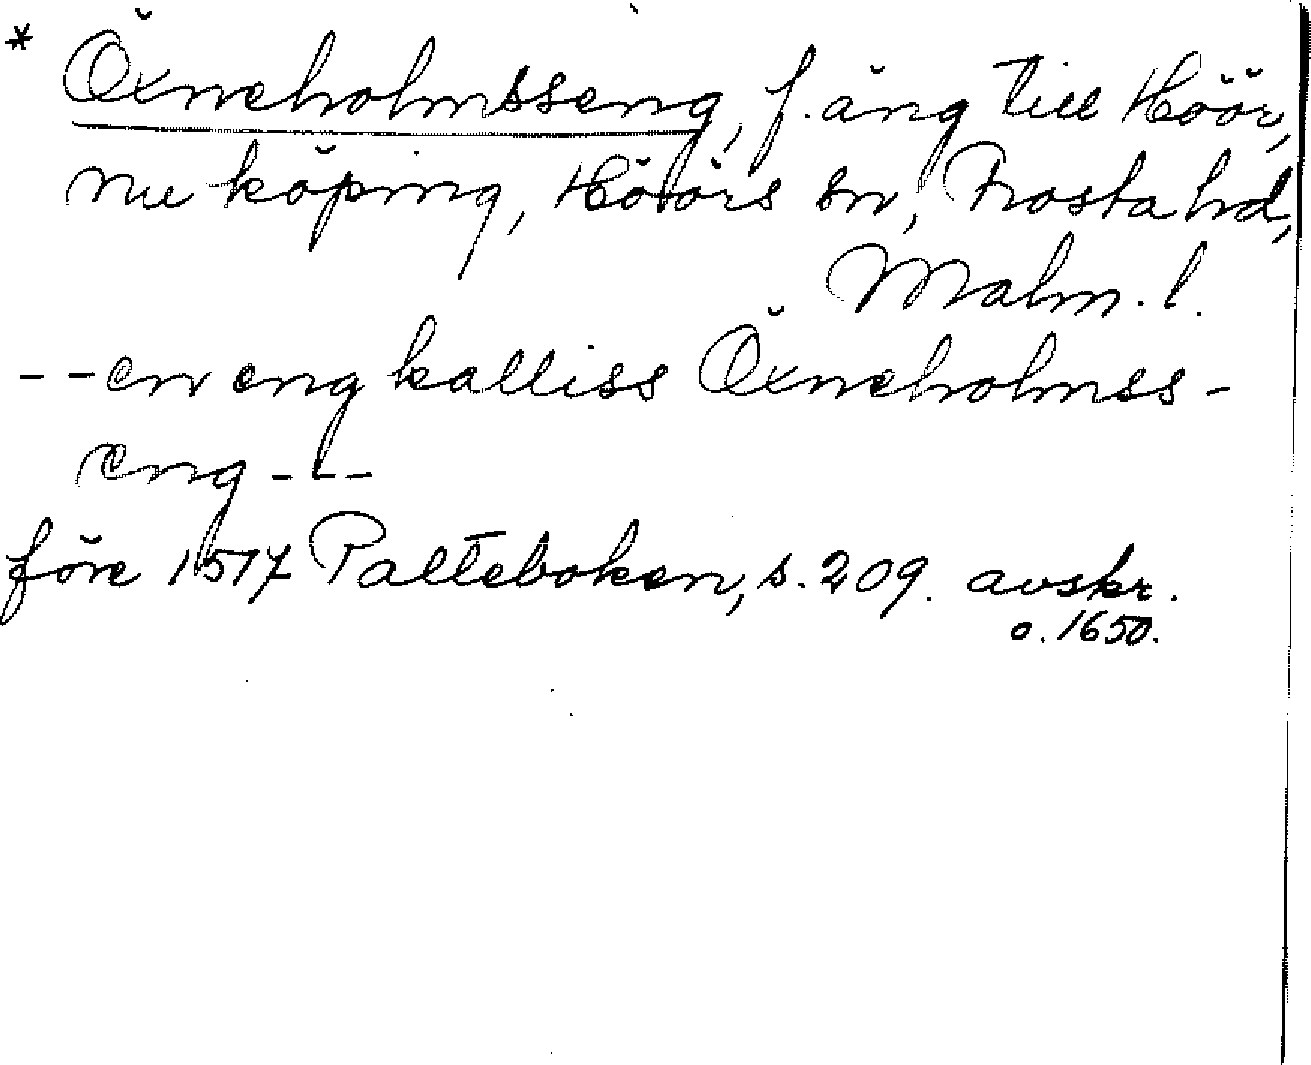 * Öxneholmsseng, f. äng till Höör,
nu köping, Höörs sn, Frosta hd,
Malm. l.
--en eng kalliss Öxneholmss-
eng---
före 1517 Palteboken, s. 209. avskr.
o. 1650.